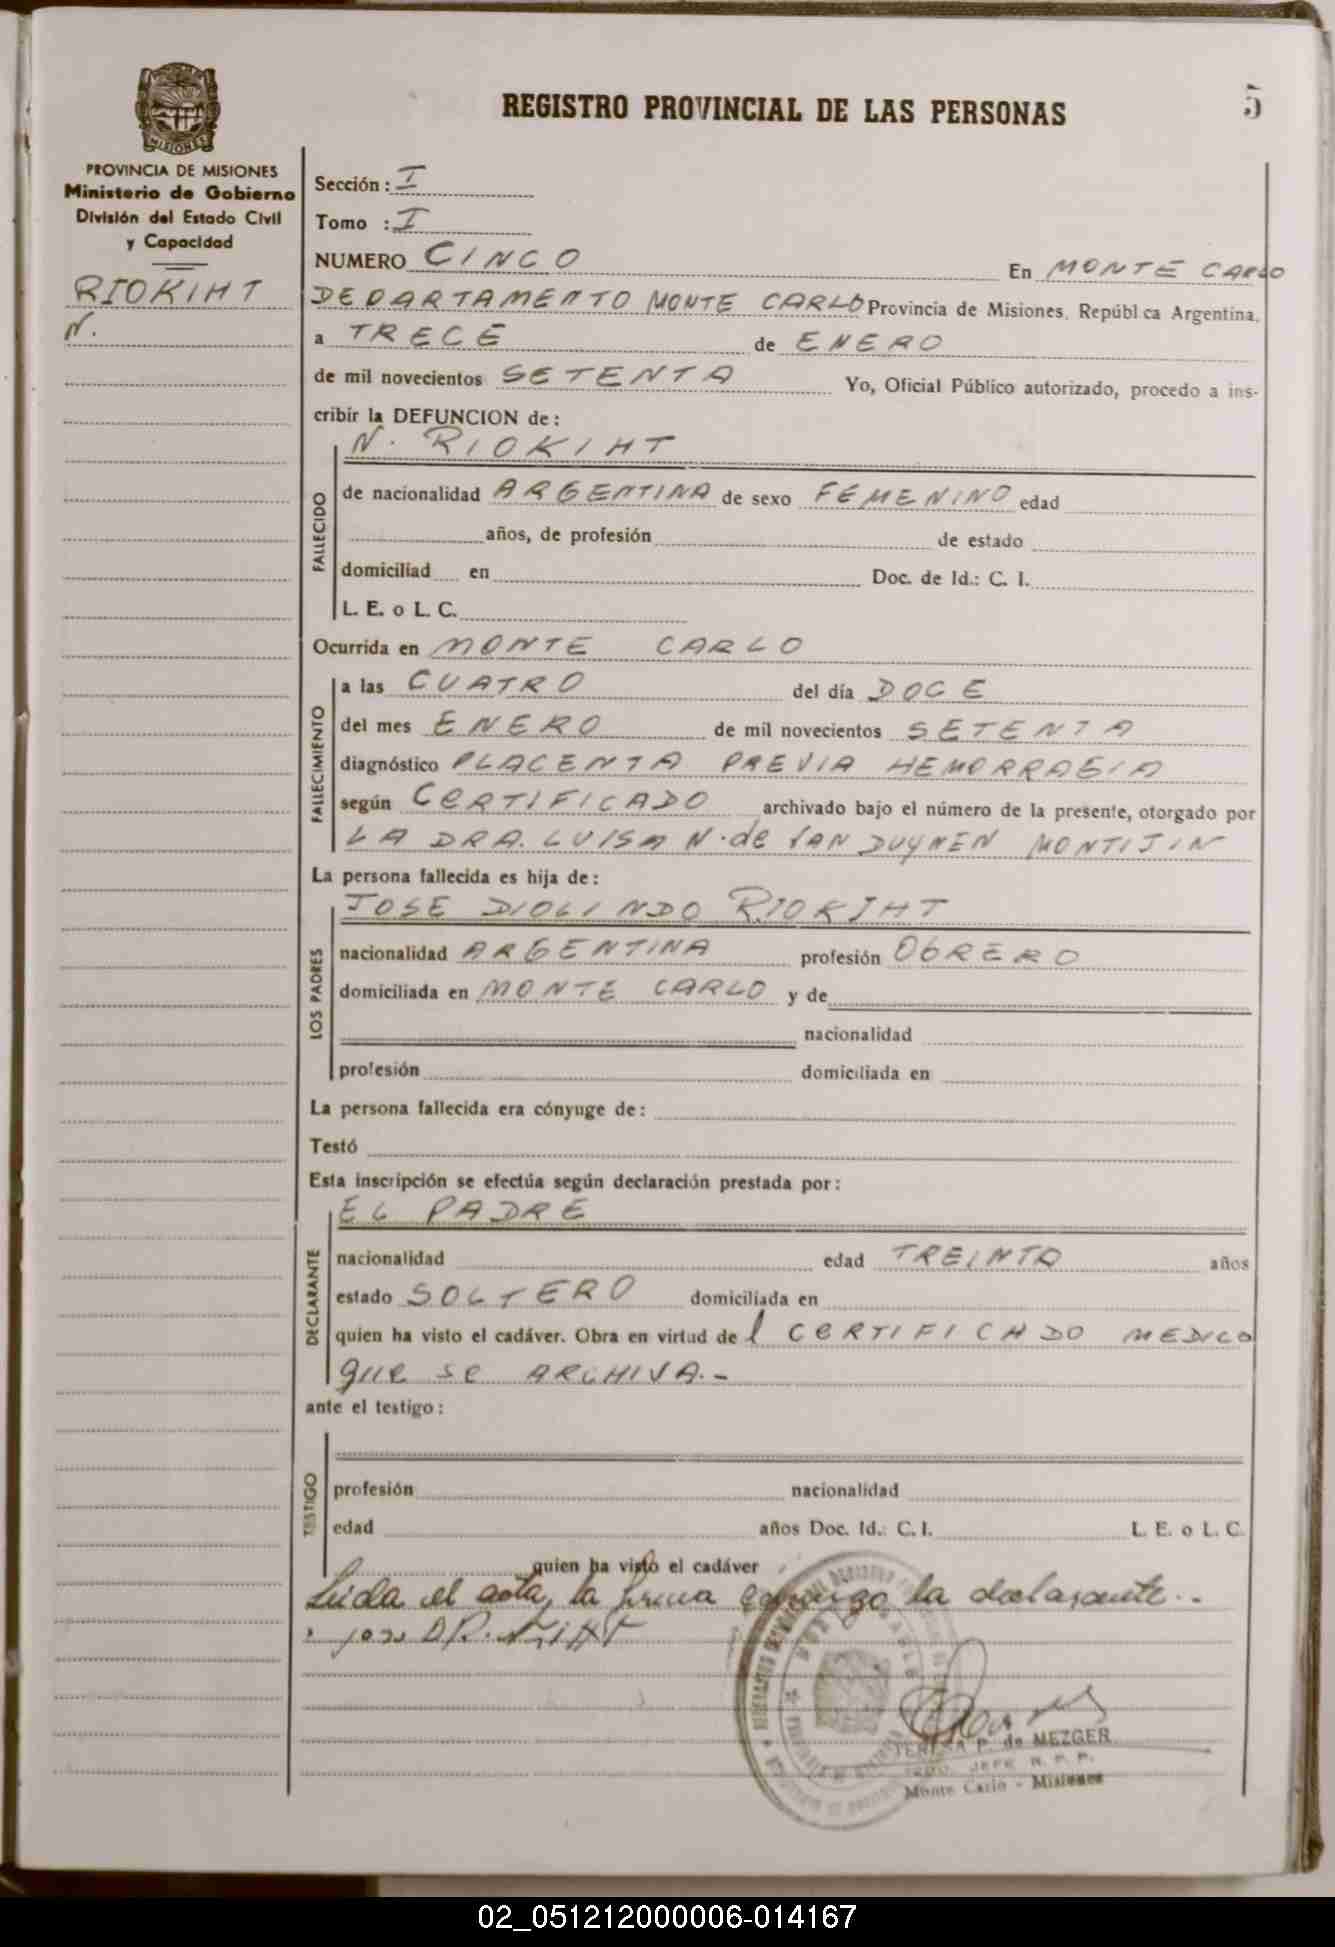 REGISTRO PROVINCIAL DE LAS PERSONAS
5
MISIONES
PROVINCIA DE MISIONES
Ministerio de Gobierno
División del Estado Civil
y Capacidad
RIOKIHT
N.
Sección: I
Tomo : I
NUMERO CINCO En MONTE CARLO
DEPARTAMENTO MONTE CARLO Provincia de Misiones, República Argentina,
a TRECE de ENERO
de mil novecientos SETENTA Yo, Oficial Público autorizado, procedo a ins-
cribir la DEFUNCION de:
FALLECIDO
N. RIOKIHT
de nacionalidad ARGENTINA de sexo FEMENINO edad
años, de profesión de estado
domiciliad en Doc. de Id.: C. I.
L. E. o L. C.
Ocurrida en MONTE CARLO
FALLECIMIENTO
a las CUATRO del día DOCE
del mes ENERO de mil novecientos SETENTA
diagnóstico PLACENTA PREVIA HEMORRAGIA
según CERTIFICADO archivado bajo el número de la presente, otorgado por
LA DRA. LUISA N. de VAN DUYNEN MONTIJIN
La persona fallecida es hija de:
LOS PADRES
JOSE DIOLINDO RIOKIHT
nacionalidad ARGENTINA profesión OBRERO
domiciliada en MONTE CARLO y de
nacionalidad
profesión domiciliada en
La persona fallecida era cónyuge de:
Testó
Esta inscripción se efectúa según declaración prestada por:
DECLARANTE
EL PADRE
nacionalidad edad TREINTA años
estado SOLTERO domiciliada en
quien ha visto el cadáver. Obra en virtud de l CERTIFICADO MEDICO
que se ARCHIVA.-
ante el testigo:
TESTIGO
profesión nacionalidad
edad años Doc. Id.: C. I. L. E. o L. C.
quien ha visto el cadáver
Leida el acta, la firma conmigo la declarante.-
P. de MEZGER
JEFE R. P. P.
Monte Carlo - Misiones
02_051212000006-014167